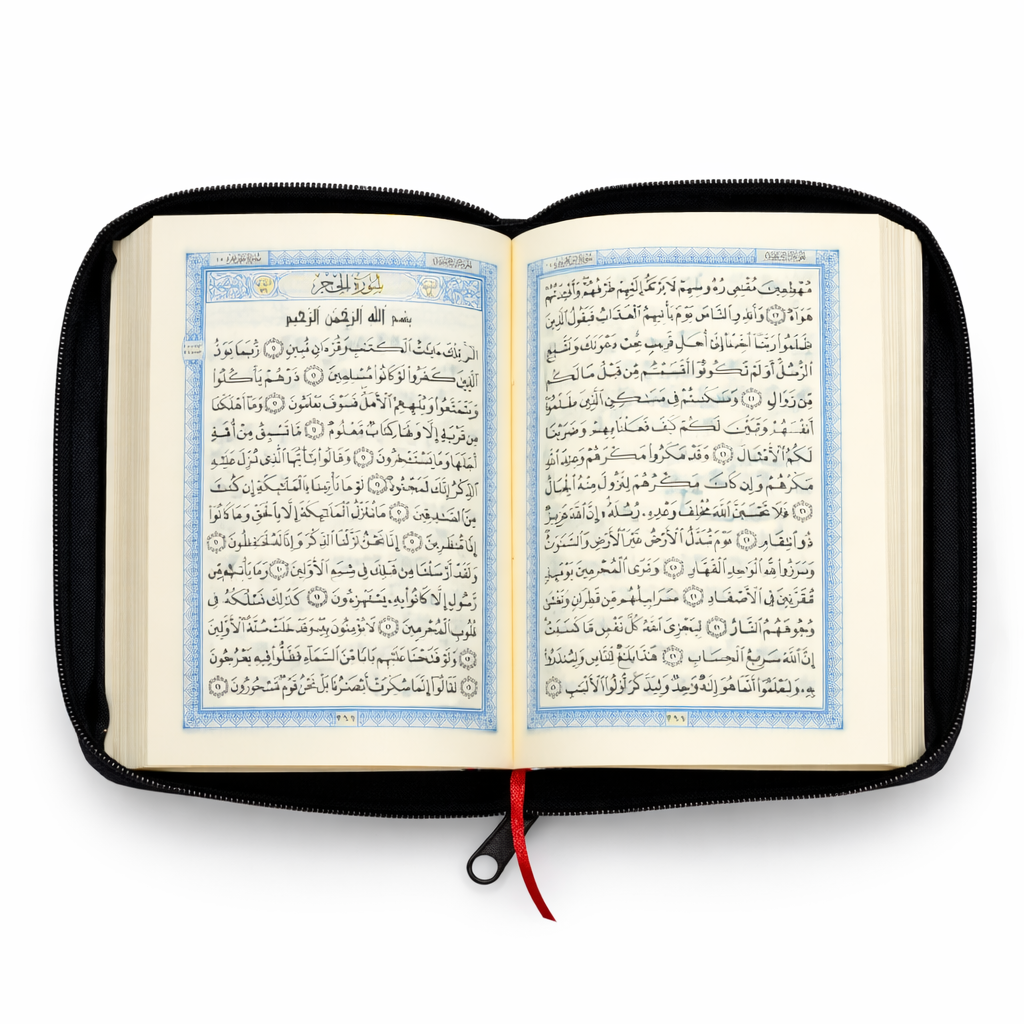 مهطعين مقنعي رءوسهم لا يرتد إليهم طرفهم وأفئدتهم
هواء وأنذر الناس يوم يأتيهم العذاب فيقول الذين
ظلموا ربنا أخرنا إلى أجل قريب نجب دعوتك ونتبع
الرسل أولم تكونوا أقسمتم من قبل ما لكم
من زوال وسكنتم في مسكن الذين ظلموا
أنفسهم وتبين لكم كيف فعلنا بهم وضربنا
لكم الأمثال وقد مكروا مكرهم وعند الله
مكرهم وإن كان مكرهم لتزول منه الجبال
فلا تحسبن الله مخلف وعده رسله إن الله عزيز
ذو انتقام يوم تبدل الأرض غير الأرض والسموت
وبرزوا لله الوحد القهار وترى المجرمين يومئذ
مقرنين في الأصفاد سرابيلهم من قطران وتغشى
وجوههم النار ليجزي الله كل نفس ما كسبت
إن الله سريع الحساب هذا بلغ للناس ولينذروا
به وليعلموا أنما هو إله وحد وليذكر أولوا الألبب
سورة الحجر
بسم الله الرحمن الرحيم
الر تلك ءايت الكتب وقرءان مبين ربما يود
الذين كفروا لو كانوا مسلمين ذرهم يأكلوا
ويتمتعوا ويلههم الأمل فسوف يعلمون وما أهلكنا
من قرية إلا ولها كتاب معلوم ما تسبق من أمة
أجلها وما يستئخرون وقالوا يأيها الذي نزل عليه
الذكر إنك لمجنون لو ما تأتينا بالملئكة إن كنت
من الصدقين ما ننزل الملئكة إلا بالحق وما كانوا
إذا منظرين إنا نحن نزلنا الذكر وإنا له لحفظون
ولقد أرسلنا من قبلك في شيع الأولين وما يأتيهم من
رسول إلا كانوا به يستهزءون كذلك نسلكه في
قلوب المجرمين لا يؤمنون به وقد خلت سنة الأولين
ولو فتحنا عليهم بابا من السماء فظلوا فيه يعرجون
لقالوا إنما سكرت أبصرنا بل نحن قوم مسحورون